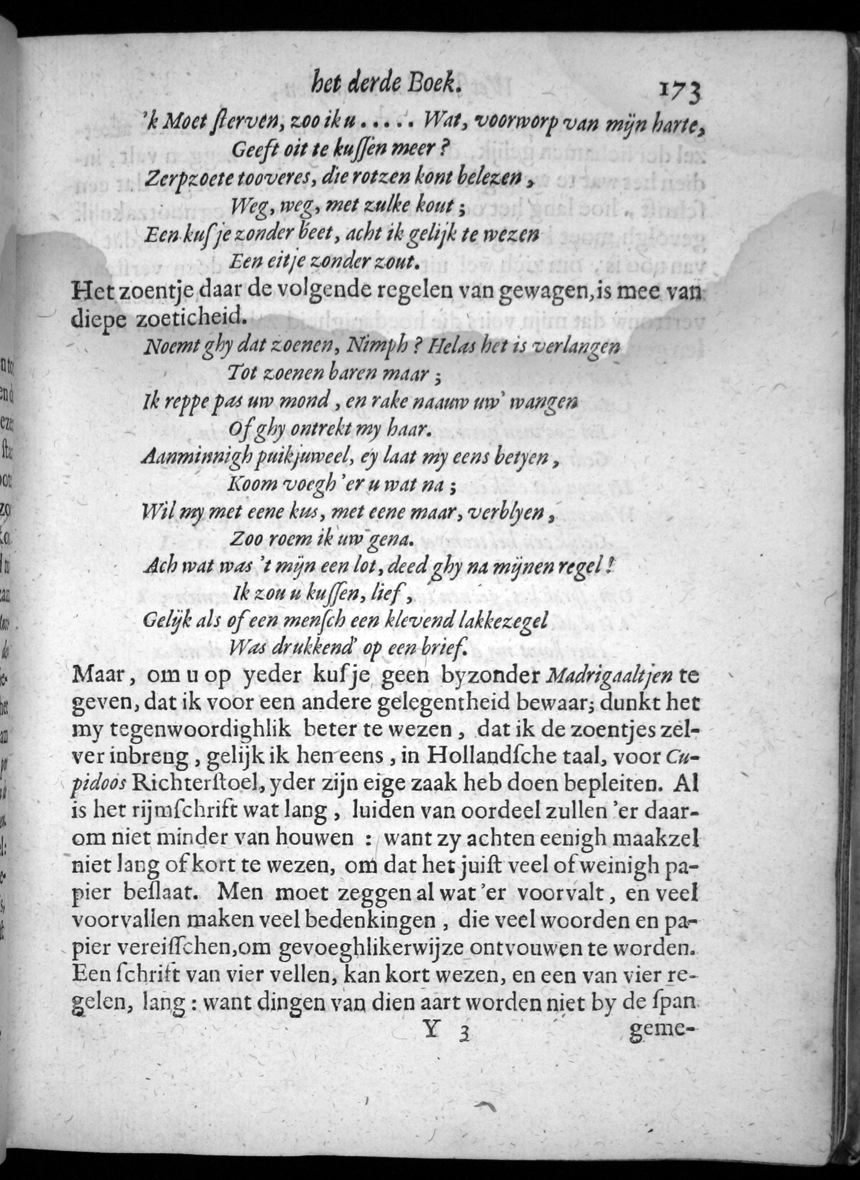 het derde Boek. 173
'k Moet ſterven, zoo ik u ..... Wat, voorworp van mijn harte,
Geeft oit te kuſſen meer?
Zerpzoete tooveres, die rotzen kont belezen,
Weg, weg, met zulke kout;
Een kuſje zonder beet, acht ik gelijk te wezen
Een eitje zonder zout.
Het zoentje daar de volgende regelen van gewagen, is mee van
diepe zoeticheid.
Noemt ghy dat zoenen, Nimph? Helas het is verlangen
Tot zoenen baren maar;
Ik reppe pas uw mond, en rake naauw uw' wangen
Of ghy ontrekt my haar.
Aanminnigh puikjuweel, ey laat my eens betyen,
Koom voegh 'er u wat na;
Wil my met eene kus, met eene maar, verblyen,
Zoo roem ik uw gena.
Ach wat was 't mijn een lot, deed ghy na mijnen regel!
Ik zou u kuſſen, lief,
Gelijk als of een menſch een klevend lakkezegel
Was drukkend' op een brief.
Maar, om u op yeder kuſje geen byzonder Madrigaaltjen te
geven, dat ik voor een andere gelegentheid bewaar; dunkt het
my tegenwoordighlik beter te wezen, dat ik de zoentjes zel-
ver inbreng, gelijk ik hen eens, in Hollandſche taal, voor Cu-
pidoos Richterſtoel, yder zijn eige zaak heb doen bepleiten. Al
is het rijmſchrift wat lang, luiden van oordeel zullen 'er daar-
om niet minder van houwen: want zy achten eenigh maakzel
niet lang of kort te wezen, om dat het juiſt veel of weinigh pa-
pier beſlaat. Men moet zeggen al wat 'er voorvalt, en veel
voorvallen maken veel bedenkingen, die veel woorden en pa-
pier vereiſſchen, om gevoeghlikerwijze ontvouwen te worden.
Een ſchrift van vier vellen, kan kort wezen, en een van vier re-
gelen, lang: want dingen van dien aart worden niet by de ſpan
Y 3 geme-